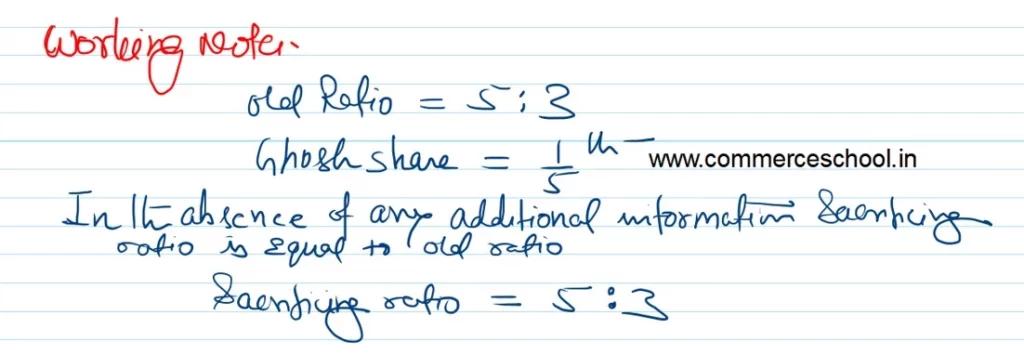 Working Note:
Old Ratio = 5 : 3
Ghosh share = 1/5 th
www.commerceschool.in
In the absence of any additional information Sacrificing
ratio is equal to old ratio
Sacrificing ratio = 5 : 3